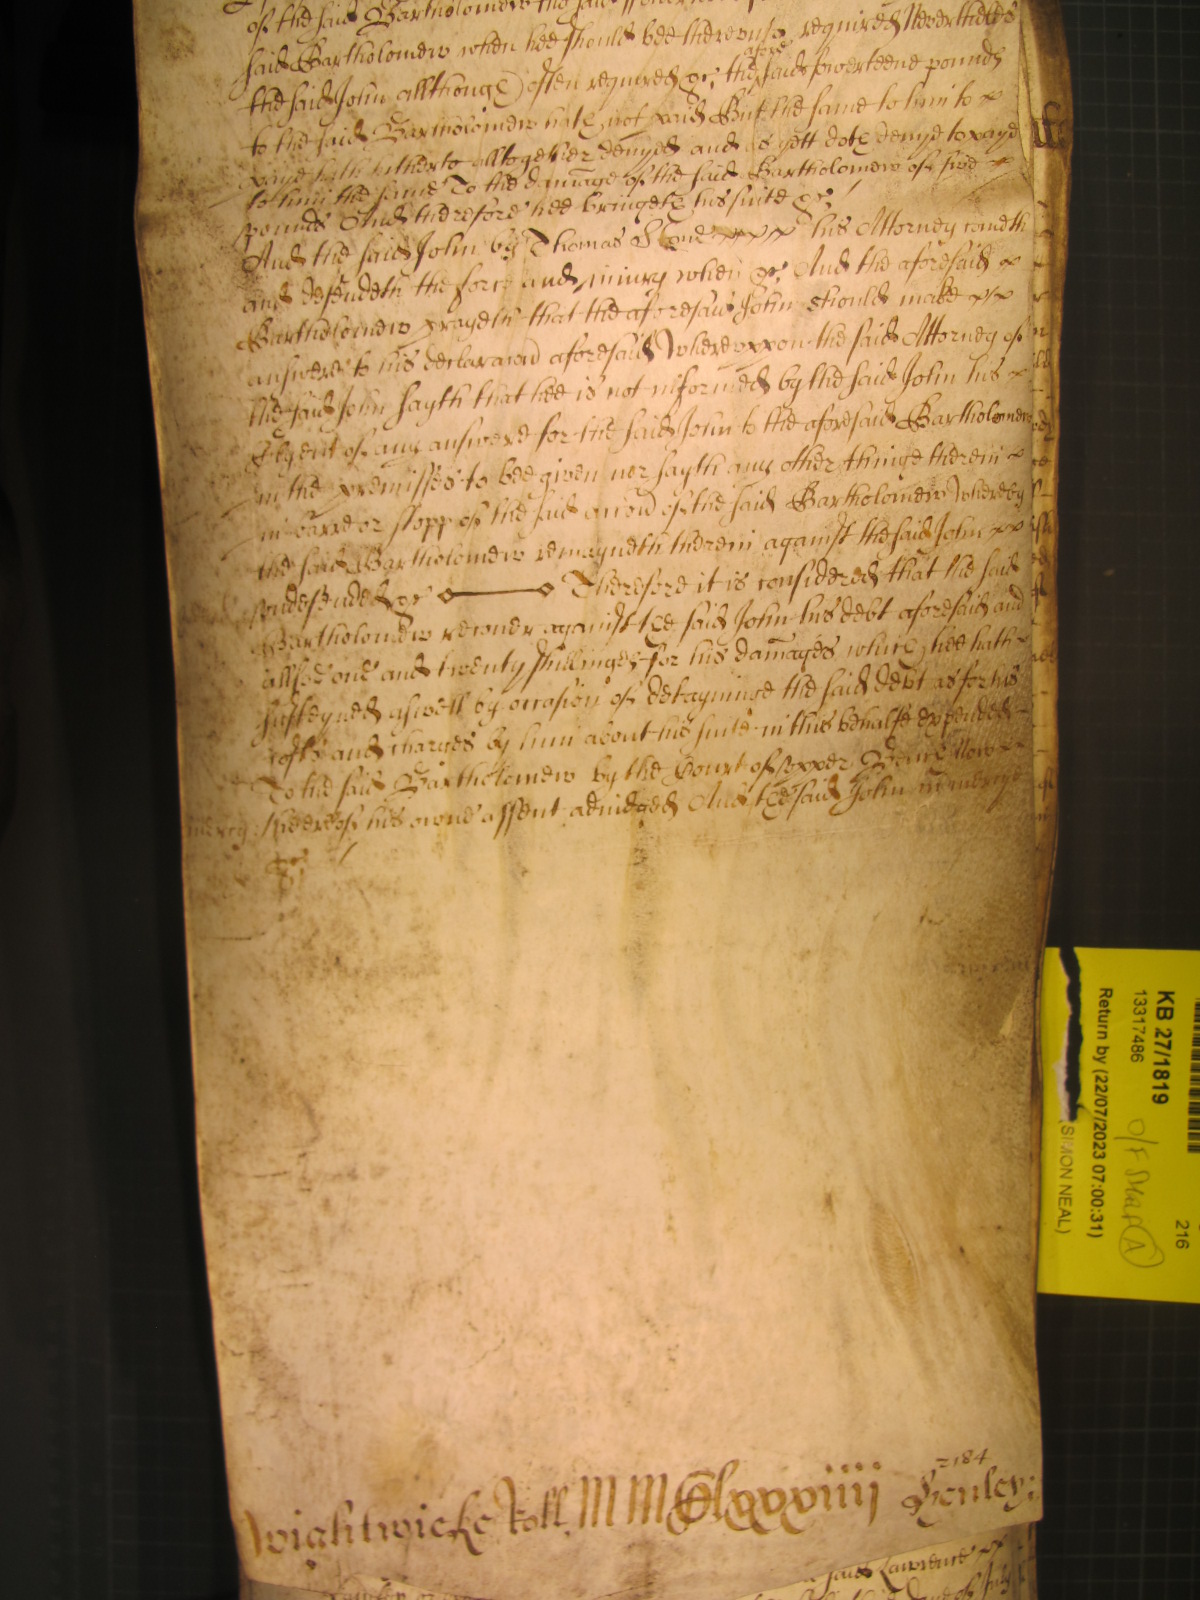 of the said Bartholomew the said
said Bartholomew when hee should bee thereunto required Neverthelesse
the said John allthough often required &c, the afore said fowerteene pounds
to the said Bartholomew hath not paid But the same to him to
paye hath hitherto alltogether denyed and as yett doth denye to paye
to him the same To the damage of the said Bartholomew of five
pounds And therefore hee bringeth his suite &c,
And the said John by Thomas his Attorney cometh
and defendeth the force and iniury when &c, And the aforesaid
Bartholomew prayeth that the aforesaid John should make
answere to his declaracon aforesaid Whereuppon the said Attorney of
the said John sayth that hee is not informed by the said John his
Clyent of any answere for the said John to the aforesaid Bartholomew
in the premisses to bee given nor sayth any other thinge therein
in barre or stopp of the said accon of the said Bartholomew Whereby
the said Bartholomew remayneth therein against the said John
undefended &c Therefore it is considered that the said
Bartholomew recover against the said John his debt aforesaid and
allsoe one and twenty shillinges for his damages which hee hath
susteyned aswell by occasion of deteyninge the said debt as for his
costs and charges by him about his suite in this behalfe expended
To the said Bartholomew by the Court of upper Bench Now
mercy heere of his owne assent adiudged And the said John in mercye
&c,
=184
Wightwicke Roll MMClxxxiiij Henley:
said Lawrence
KB 27/1819
13317486
Return by (22/07/2023 07:00:31)
(SIMON NEAL)
216
O/F
A